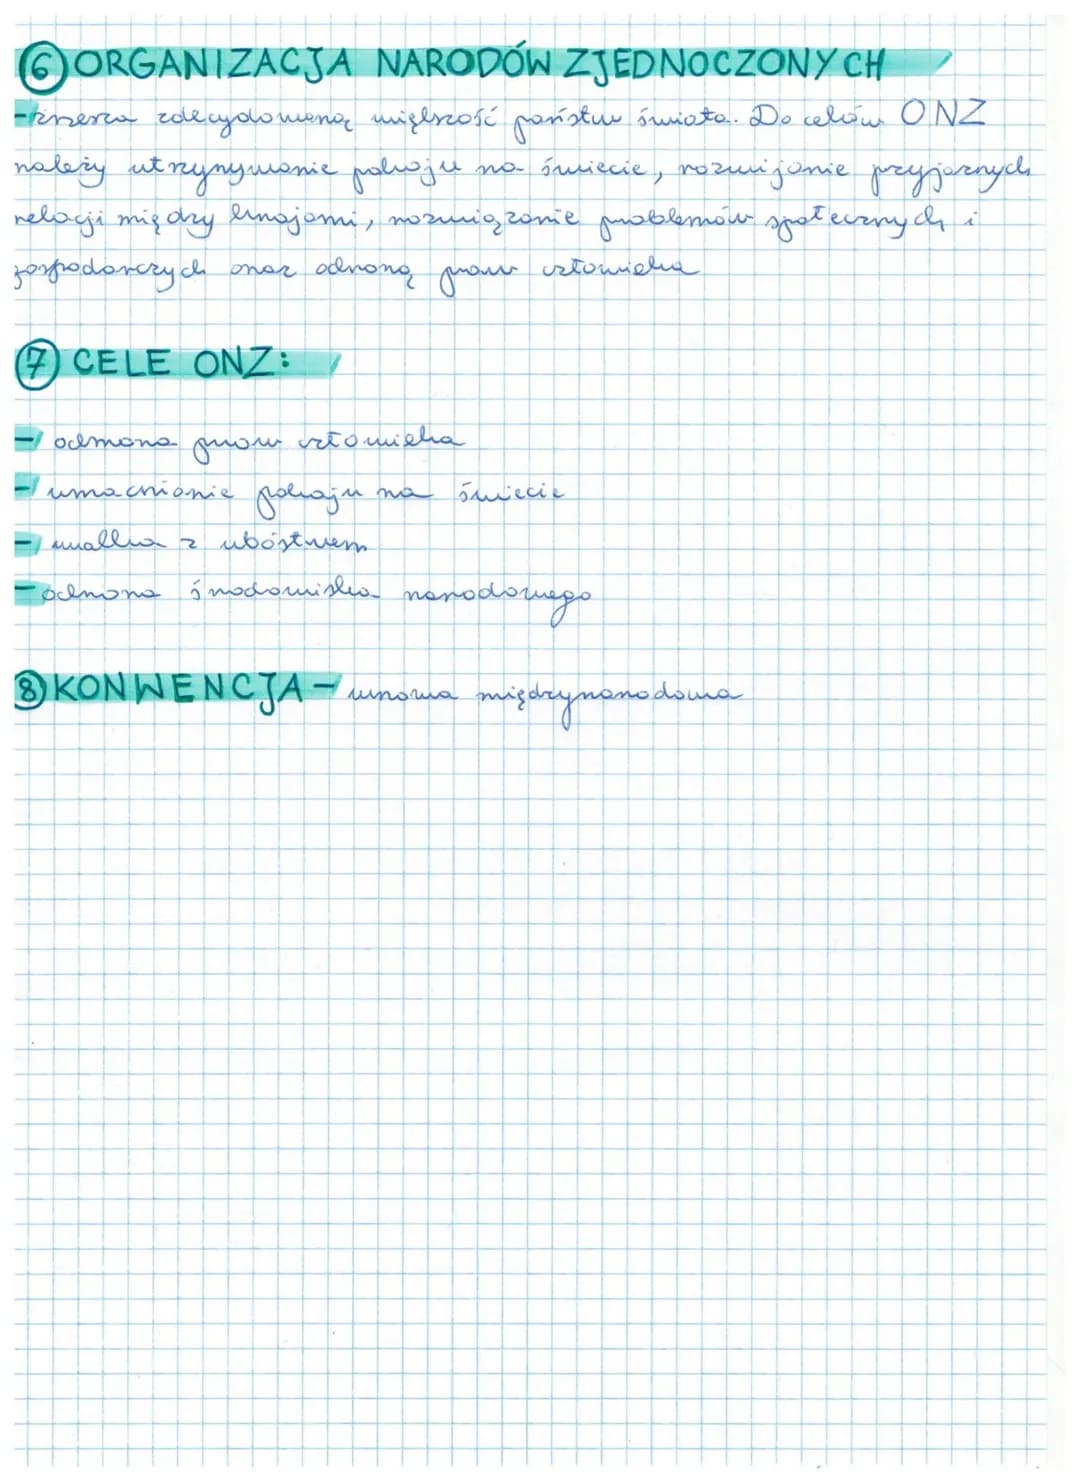 6 ORGANIZACJA NARODÓW ZJEDNOCZONYCH
- zrzesza zdecydowaną większość państw świata. Do celów ONZ
należy utrzymywanie pokoju na świecie, rozwijanie przyjaznych
relacji między krajami, rozwiązanie problemów społecznych i
gospodarczych oraz odroną praw człowieka
7 CELE ONZ:
- ochrona praw człowieka
- umacnianie pokoju na świecie
- walka z ubóstwem
- ochrona środowiska narodowego
8 KONWENCJA - umowa międzynarodowa